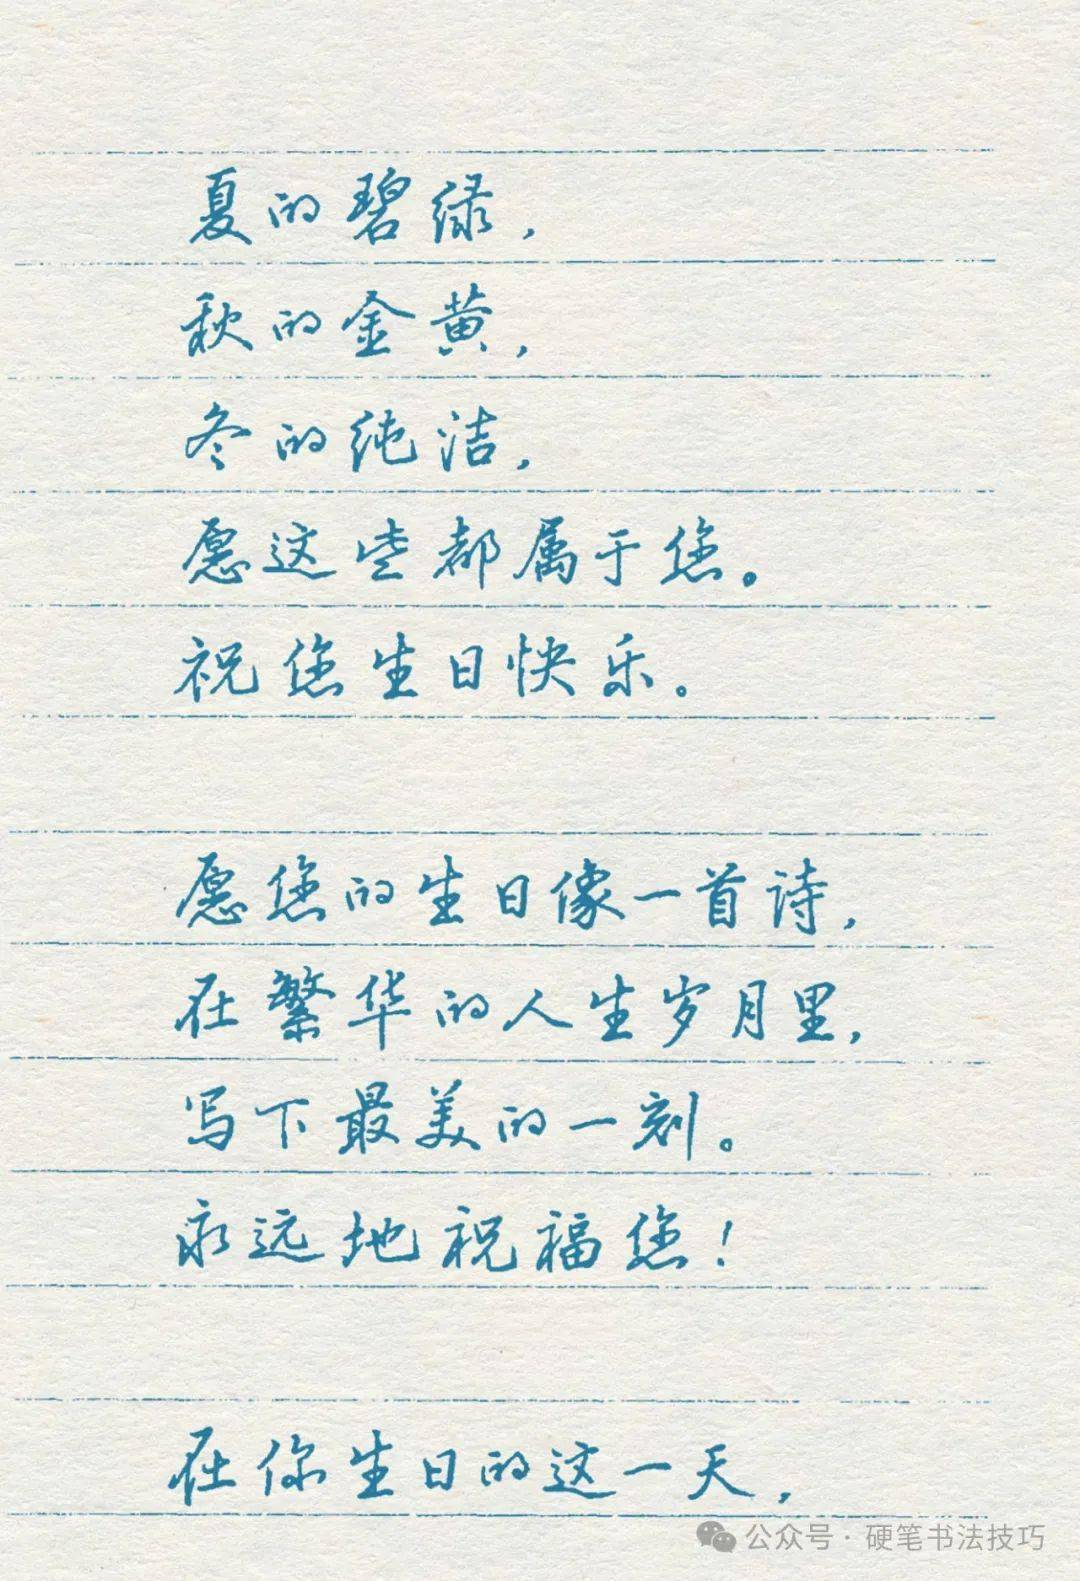 夏的碧绿，
秋的金黄，
冬的纯洁，
愿这些都属于您。
祝您生日快乐。
愿您的生日像一首诗，
在繁华的人生岁月里，
写下最美的一刻。
永远地祝福您！
在你生日的这一天，
公众号·硬笔书法技巧